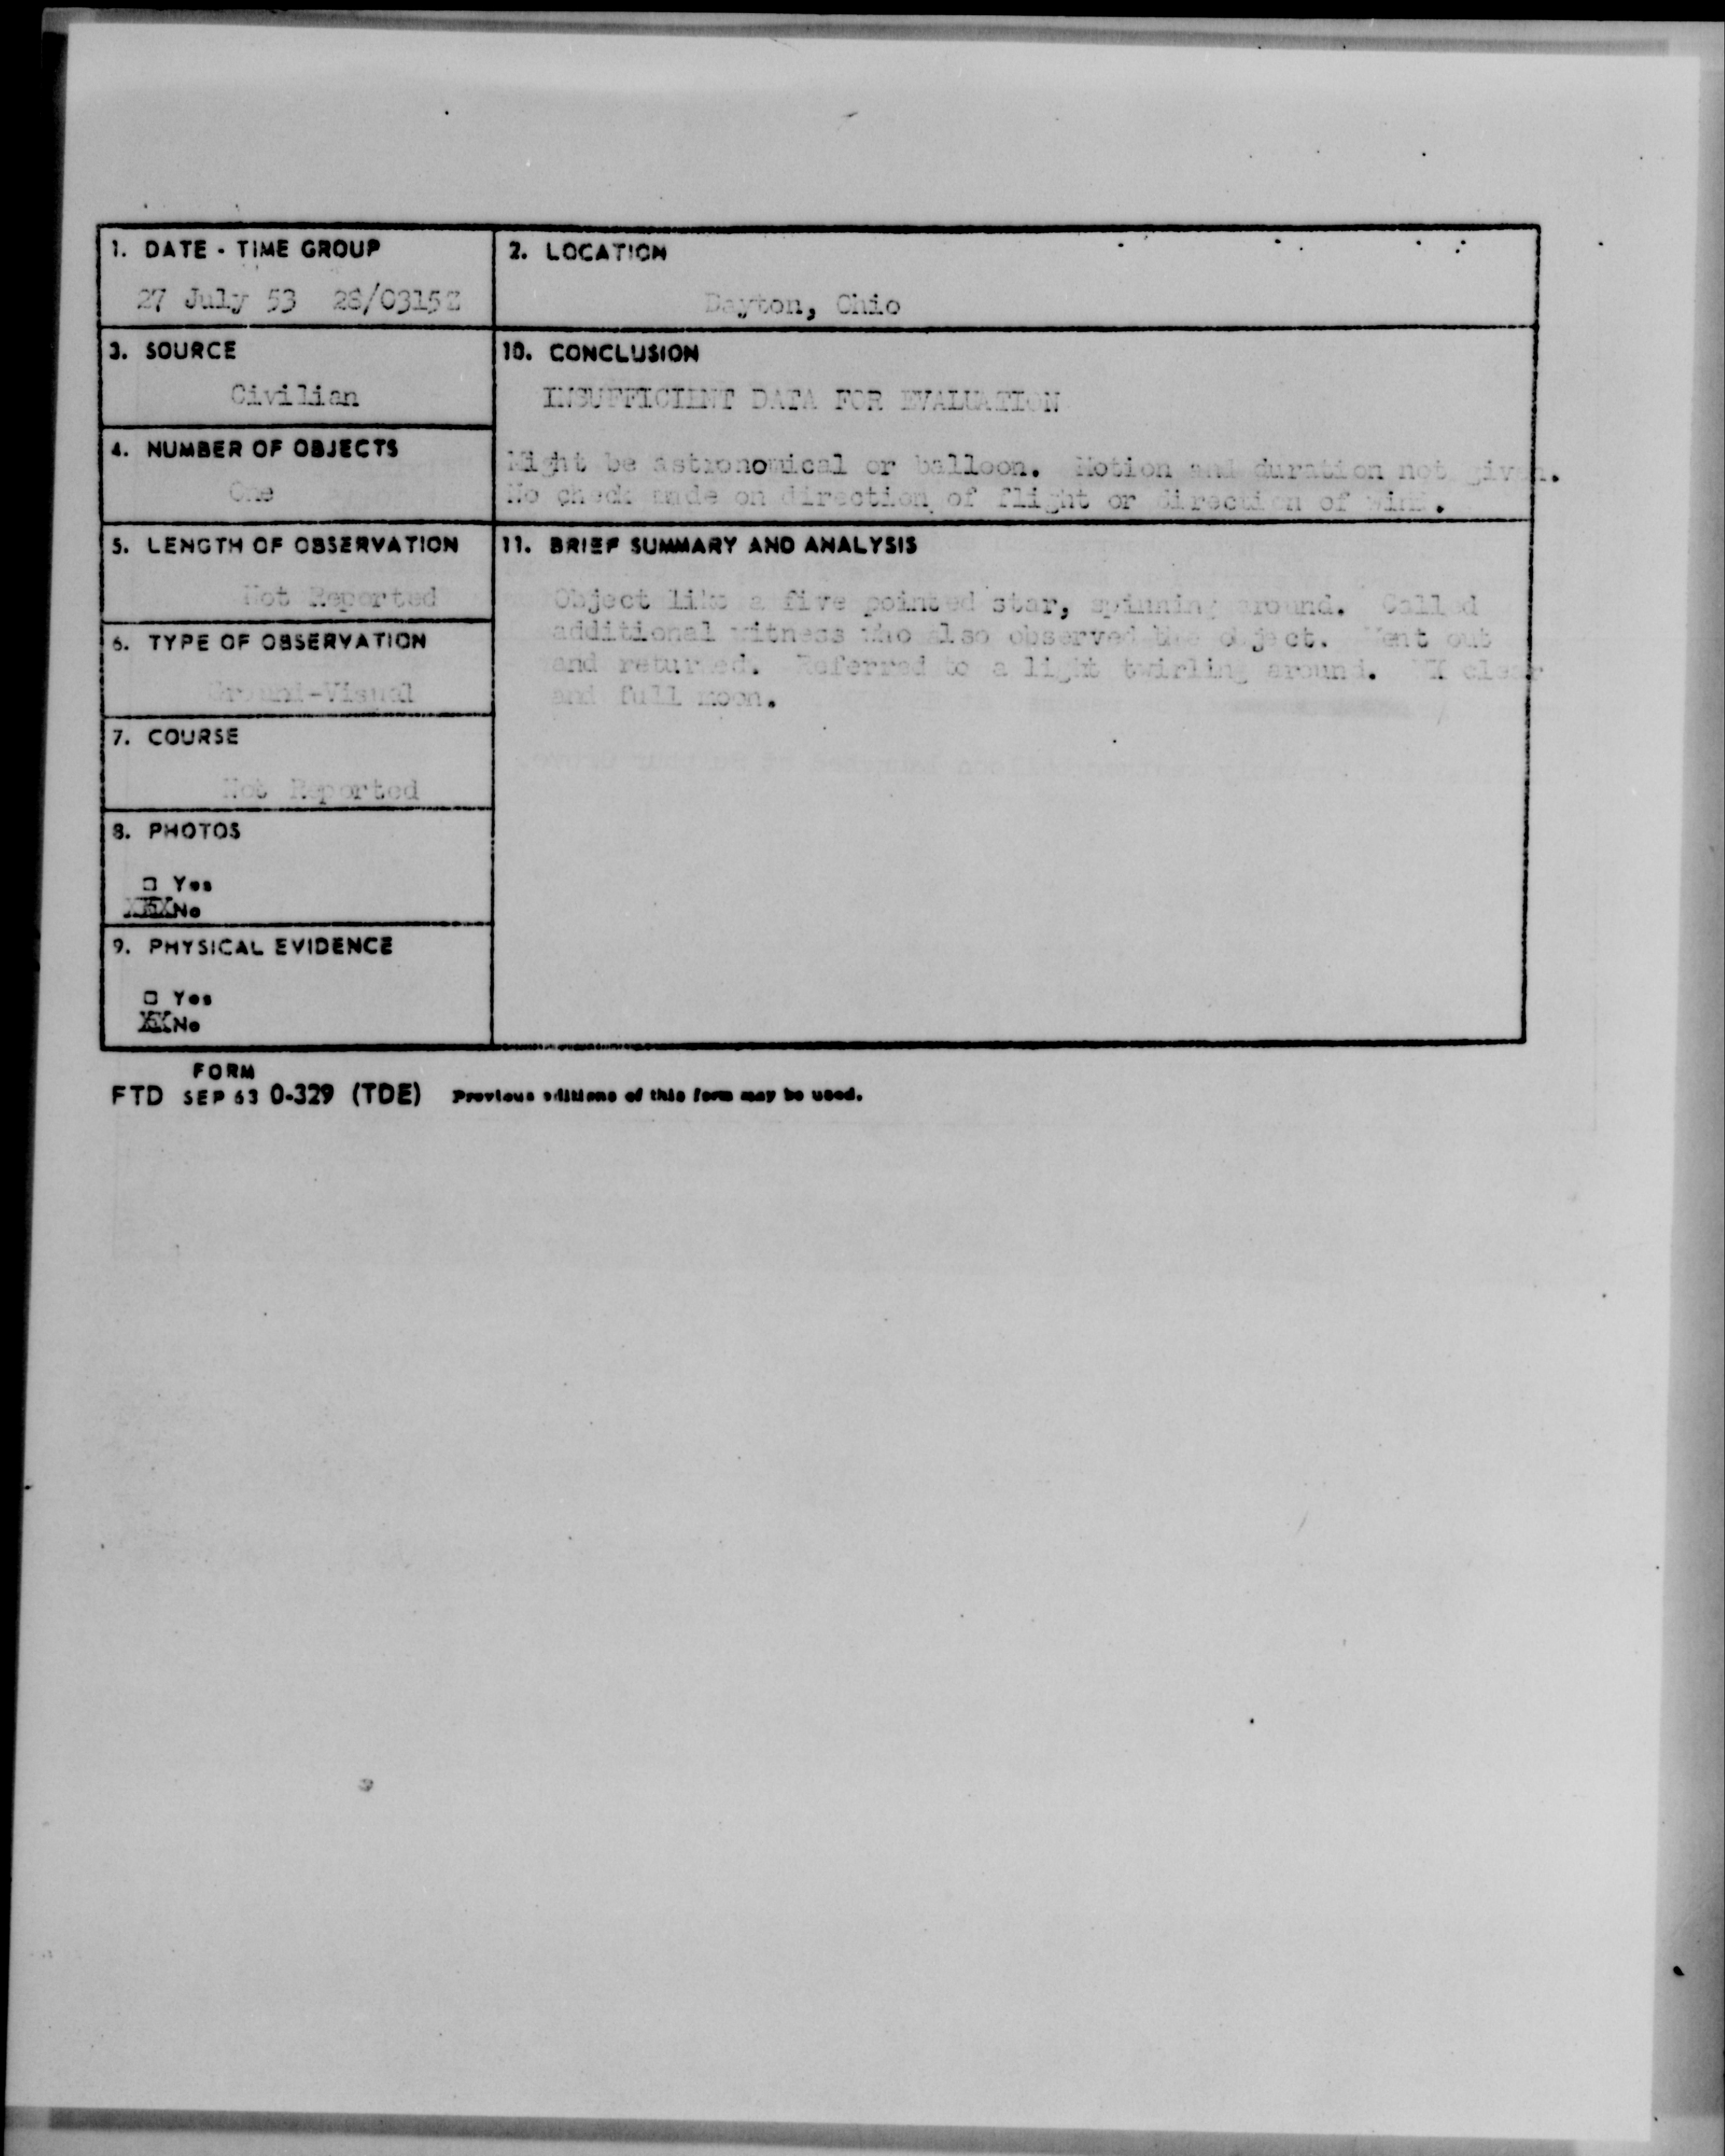 1. DATE - TIME GROUP
27 July 53 28/0315Z
2. LOCATION
Dayton, Ohio
3. SOURCE
Civilian
10. CONCLUSION
INSUFFICIENT DATA FOR EVALUATION
Might be astronomical or balloon. Motion and duration not given.
No check made on direction of flight or direction of wind.
4. NUMBER OF OBJECTS
One
5. LENGTH OF OBSERVATION
Not Reported
11. BRIEF SUMMARY AND ANALYSIS
Object like a five pointed star, spinning around. Called
additional witness who also observed the object. Went out
and returned. Referred to a light twirling around. WX clear
and full moon.
6. TYPE OF OBSERVATION
Ground-Visual
7. COURSE
Not Reported
8. PHOTOS
□ Yes
XXXNo
9. PHYSICAL EVIDENCE
□ Yes
XXNo
FORM
FTD SEP 63 0-329 (TDE) Previous editions of this form may be used.